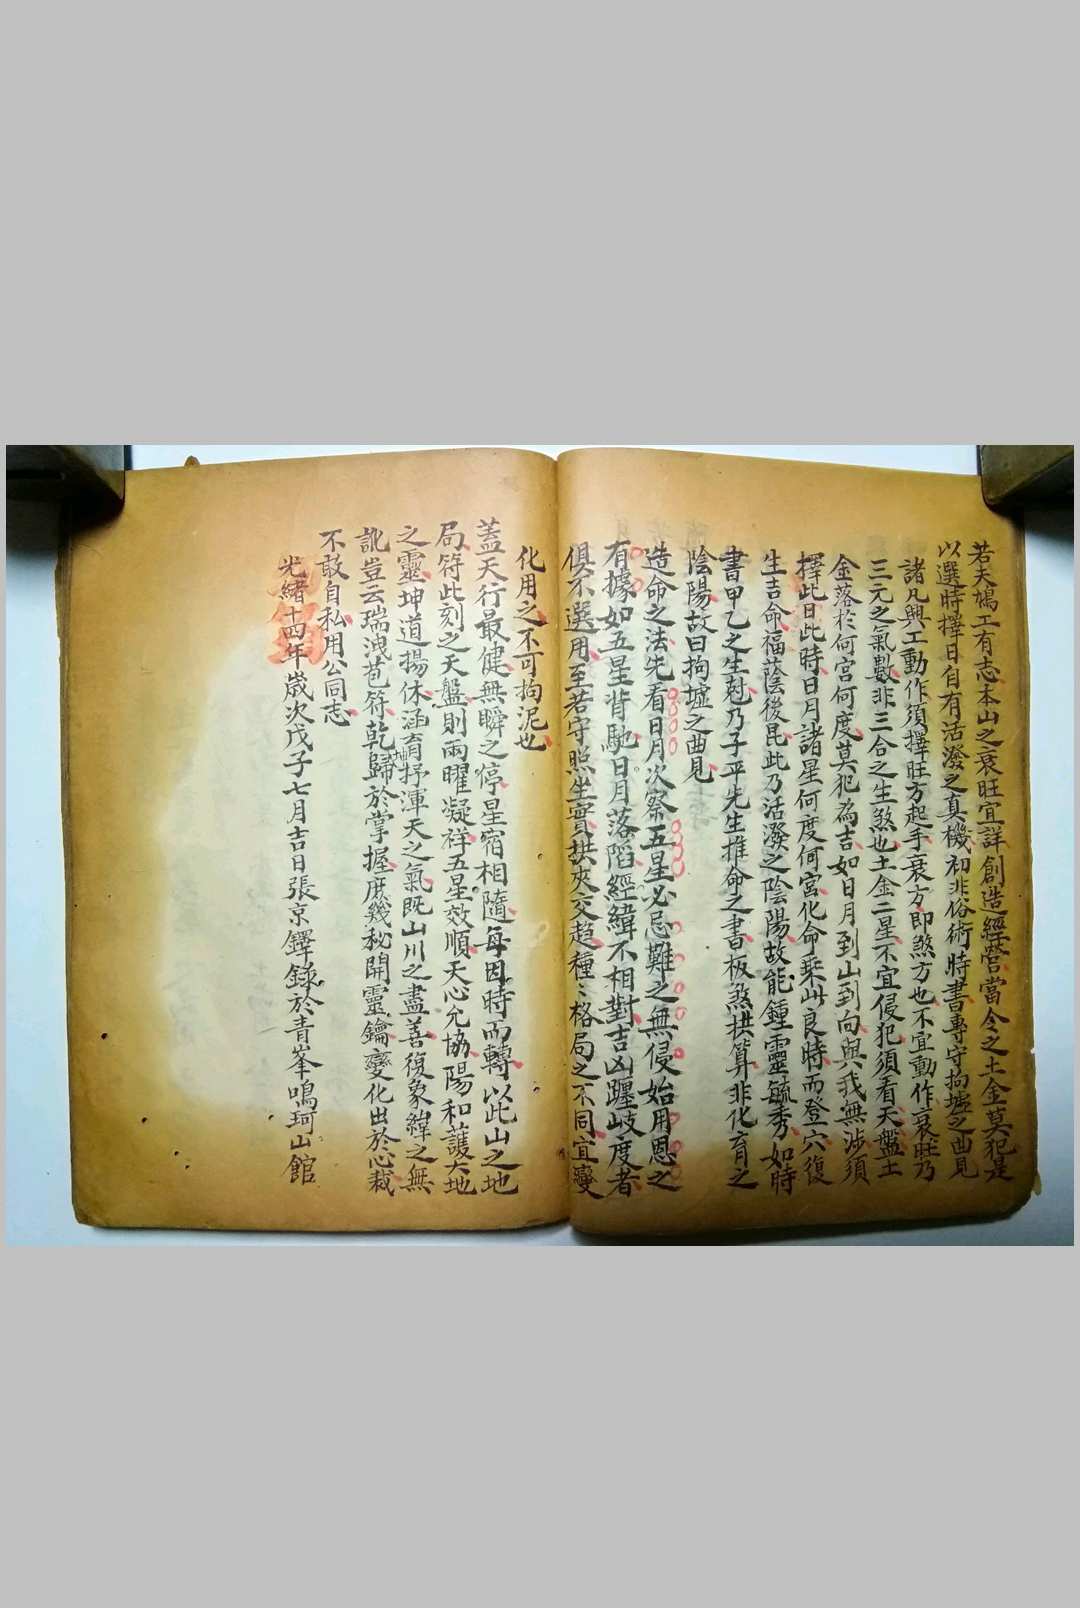 若夫鳩工有志本山之衰旺宜詳創造經營當令之土金莫犯是
以選時擇日自有活潑之真機初非俗術時書專守拘墟之曲見
諸凡興工動作須擇旺方起手衰方即煞方也不宜動作衰旺乃
三元之氣數非三合之生煞也土金二星不宜侵犯須看天盤土
金落於何宮何度莫犯為吉如日月到山到向與我無涉須
擇此日此時日月諸星何度何宮化命乘此良時而登穴復
生吉命福蔭後昆此乃活潑之陰陽故能鍾靈毓秀如時
書甲乙之生尅乃子平先生推命之書板煞拱算非化育之
陰陽故曰拘墟之曲見
造命之法先看日月次察五星必忌難之無侵始用恩之
有據如五星背馳日月落陷經緯不相對吉凶躔歧度者
俱不選用至若守照坐實拱夾交趨種〻格局之不同宜變
化用之不可拘泥也
蓋天行最健無瞬之停星宿相隨每因時而轉以此山之地
局符此刻之天盤則兩曜凝祥五星效順天心允協陽和護大地
之靈坤道揚休涵育抒渾天之氣既山川之盡善復象緯之無
訛豈云瑞洩苞符乾坤歸於掌握庶幾秘開靈鑰變化出於心裁
不敢自私用公同志
光緒十四年歲次戊子七月吉日張京鐸錄於青峯鳴珂山館